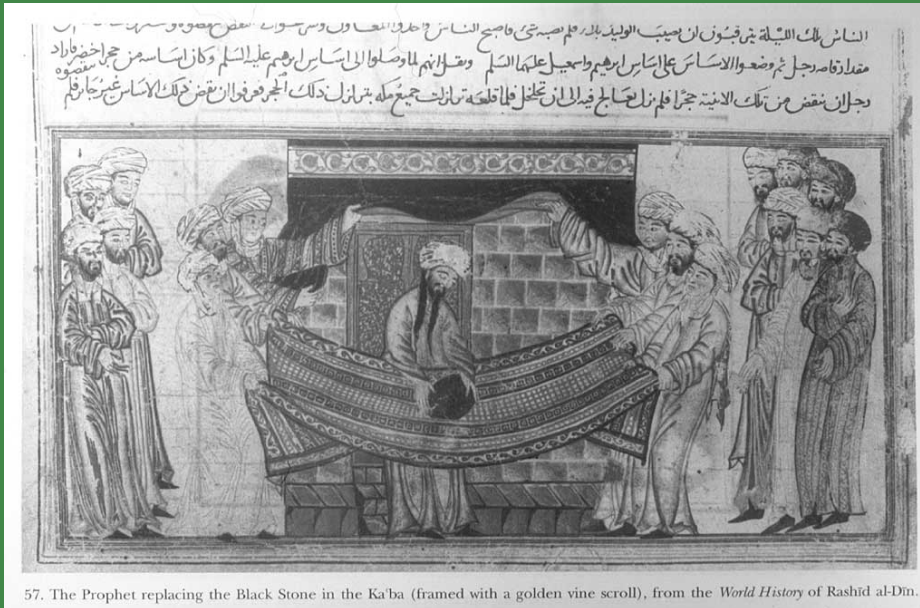 الناس تلك الليلة يترقبون ان يصيب الوليد بلاء فلم يصبه شئ فاصبح الناس واخذوا المعاول
مقدار قامه رجل ثم وضعوا الاساس على اساس ابرهيم واسمعيل عليهما السلم ونقل انهم لما وصلوا الى اساس ابرهيم عليه السلم وكان اساسه من حجر اخضر فاراد
رجل ان ينقض من تلك الابنية حجرا فلم يزل يعالج فيه الى ان تخلخل فلما قلعه تزلزلت جميع مكه بتزلزل ذلك الحجر فعرفوا ان نقض ذلك الاساس غير جايز فلم ينقضوه
57. The Prophet replacing the Black Stone in the Ka'ba (framed with a golden vine scroll), from the World History of Rashīd al-Dīn.